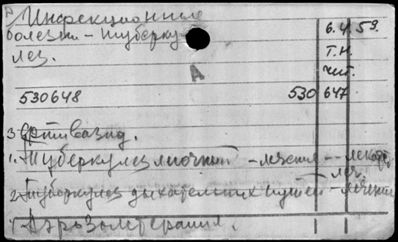 Инфекционные 6.4.59.
болезни - туберку
лез. Т.Н.
А чит.
530648 530 647
3 фтивазид.
1. Туберкулез легочный - лечение -
2. Туберкулез дыхательных путей - лечение
Аэрозолтерапия.